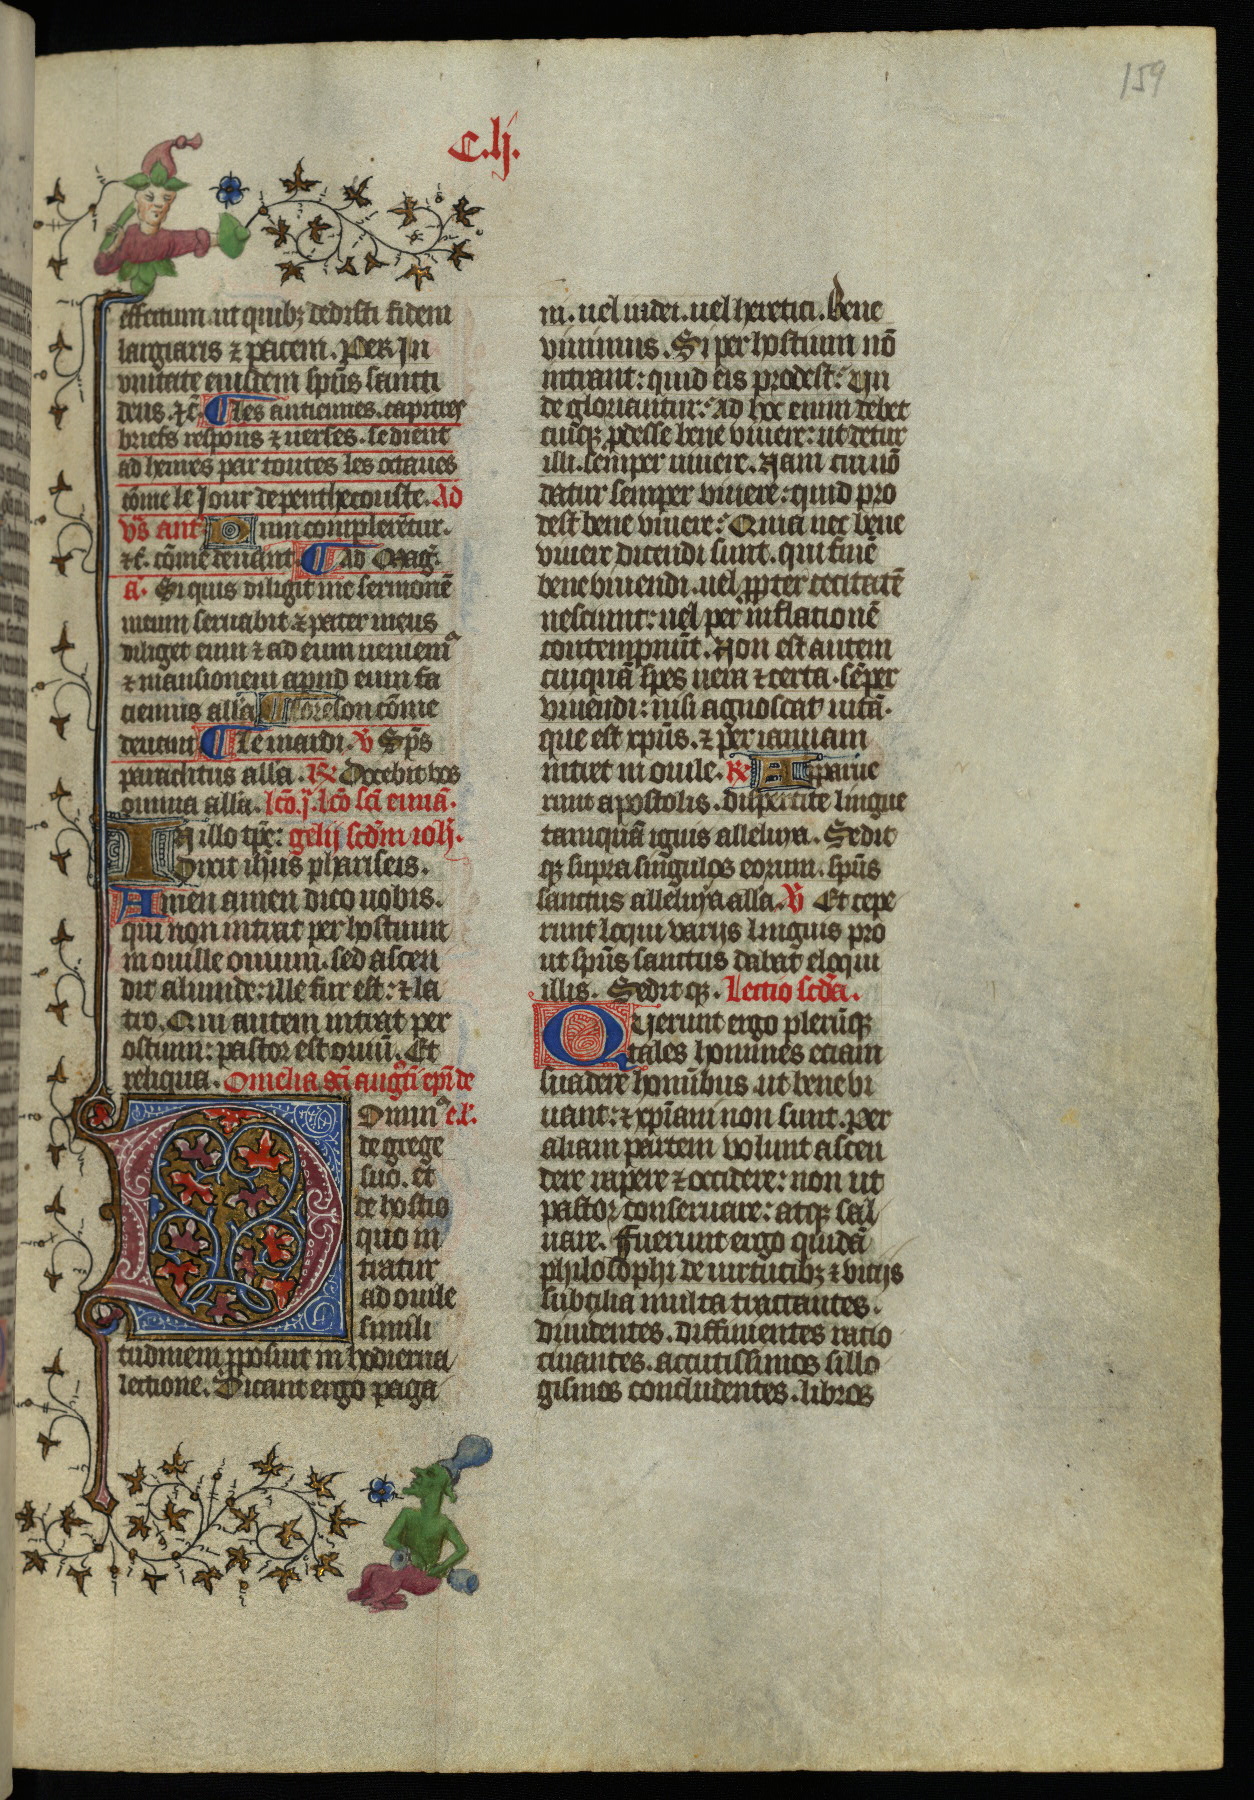 159
C.lj.
effectum ut quibꝫ dedisti fidem
largiaris ⁊ pacem. Per In
vnitate eiusdem spũs sancti
deus. ⁊c̃. Les antiennes. capitres
briefs respons ⁊ uerses. se dient
ad heures par toutes les octaues
cõme le Jour de penthecouste. Ad
vs̃ ant. Dum complerẽtur.
⁊c̃. cõme deuant. Ad Mag̃.
a. Si quis diligit me sermonẽ
meum seruabit ⁊ pater meus
diliget eum ⁊ ad eum ueniemꝰ
⁊ mansionem apud eum fa
ciemus all'a L'oreson cõme
deuant Le mardi. ℣ Sp̃s
paraclitus alla. ℟ Docebit vos
omnia alla. lcõ. j. lcõ sc̃i euuã.
In illo tp̃r: gelij scd̃m ioh̃.
Dixit ih̃us phariseis.
Amen amen dico uobis.
qui non intrat per hostium
in ouille ouium. sed ascen
dit aliunde: ille fur est: ⁊ la
tro. Qui autem intrat per
ostium: pastor est ouiũ. Et
reliqua. Omelia sc̃i aug̃ti ep̃i de
Ominꝰ e.l'.
de grege
suo. et
de hostio
quo in
tratur
ad ouile
simili
tudinem ꝓposuit in hodierna
lectione. Dicant ergo paga
ni. uel iudei. uel heretici. Bene
viuimus. Si per hostium nõ
intrant: quid eis prodest: Vn
de gloriantur: Ad hoc enim debet
cuiq̃ꝫ prodesse bene viuere: ut detur
illi. semper uiuere. Nam cui nõ
datur semper viuere: quid pro
dest bene viuere: Quia nec bene
viuere dicendi sunt. qui finẽ
bene viuendi. uel ꝓpter cecitatẽ
nesciunt: uel per inflationẽ
contempnũt. Non est autem
cuiquã spes uera ⁊ certa. sẽper
viuendi: nisi agnoscat uitã.
que est xp̃us. ⁊ per ianuam
intret in ouile. ℟ Apparue
runt apostolis. dispertite lingue
tamquã ignis alleluya. Sedit
qꝫ supra singulos eorum. spũs
sanctus alleluya alla. ℣ Et cepe
runt loqui varijs linguis pro
ut spũs sanctus dabat eloqui
illis. Sedit qꝫ. Lectio scd̃a.
Querunt ergo plerũqꝫ
tales homines eciam
suadere hominibus ut bene vi
uant: ⁊ xp̃iani non sunt. Per
aliam partem volunt ascen
dere rapere ⁊ occidere: non ut
pastor conseruare: atqꝫ sal
uare. Fuerunt ergo quidã
philosophi de uirtutibꝫ ⁊ vicijs
subtilia multa tractantes.
diuidentes. diffinientes ratio
cinantes. accutissimos sillo
gismos concludentes. libros